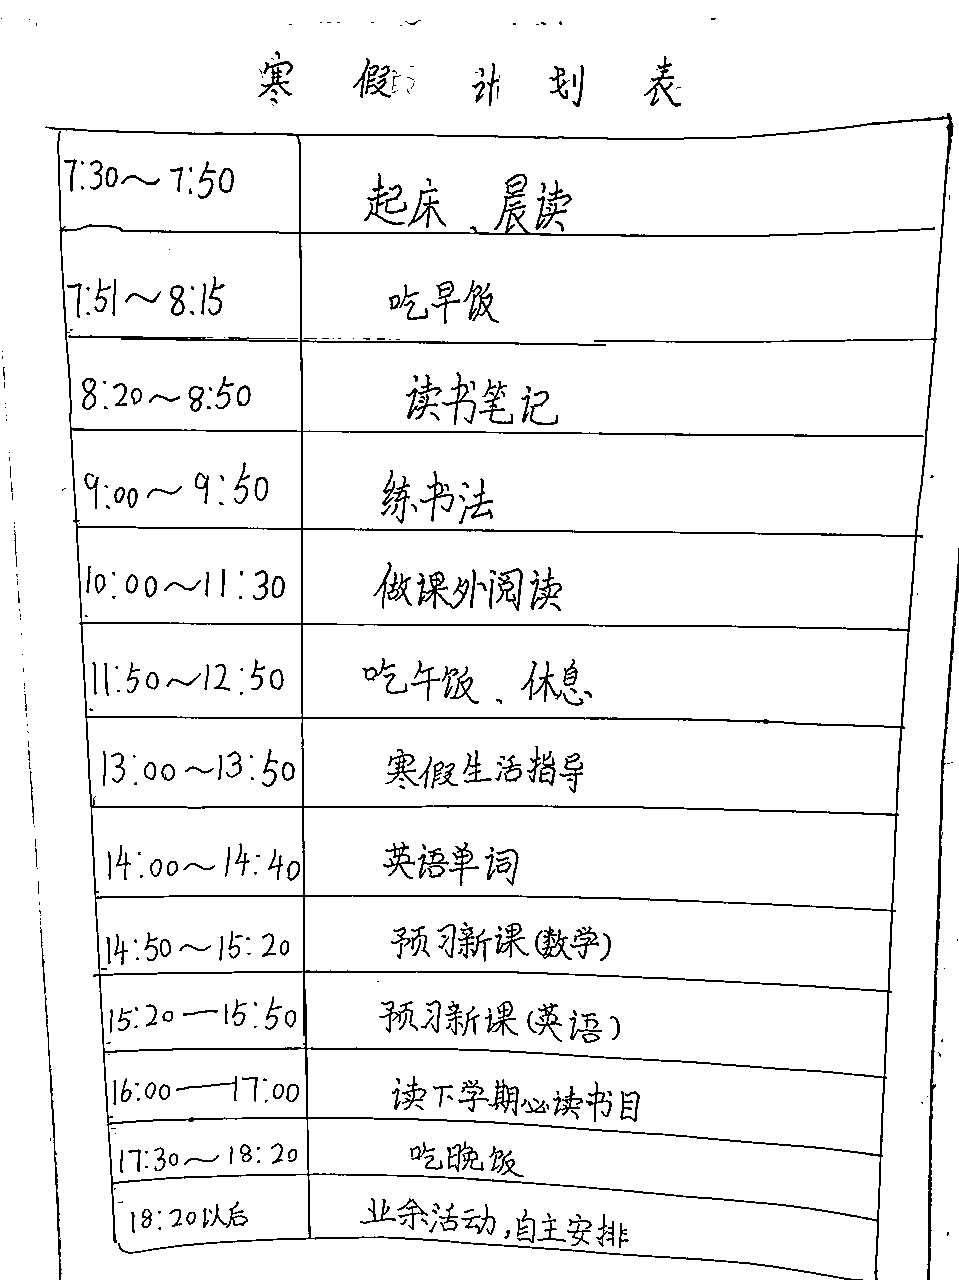 寒假计划表
7:30～7:50 起床、晨读
7:51～8:15 吃早饭
8:20～8:50 读书笔记
9:00～9:50 练书法
10:00～11:30 做课外阅读
11:50～12:50 吃午饭、休息
13:00～13:50 寒假生活指导
14:00～14:40 英语单词
14:50～15:20 预习新课(数学)
15:20—15:50 预习新课(英语)
16:00—17:00 读下学期必读书目
17:30～18:20 吃晚饭
18:20以后 业余活动,自主安排